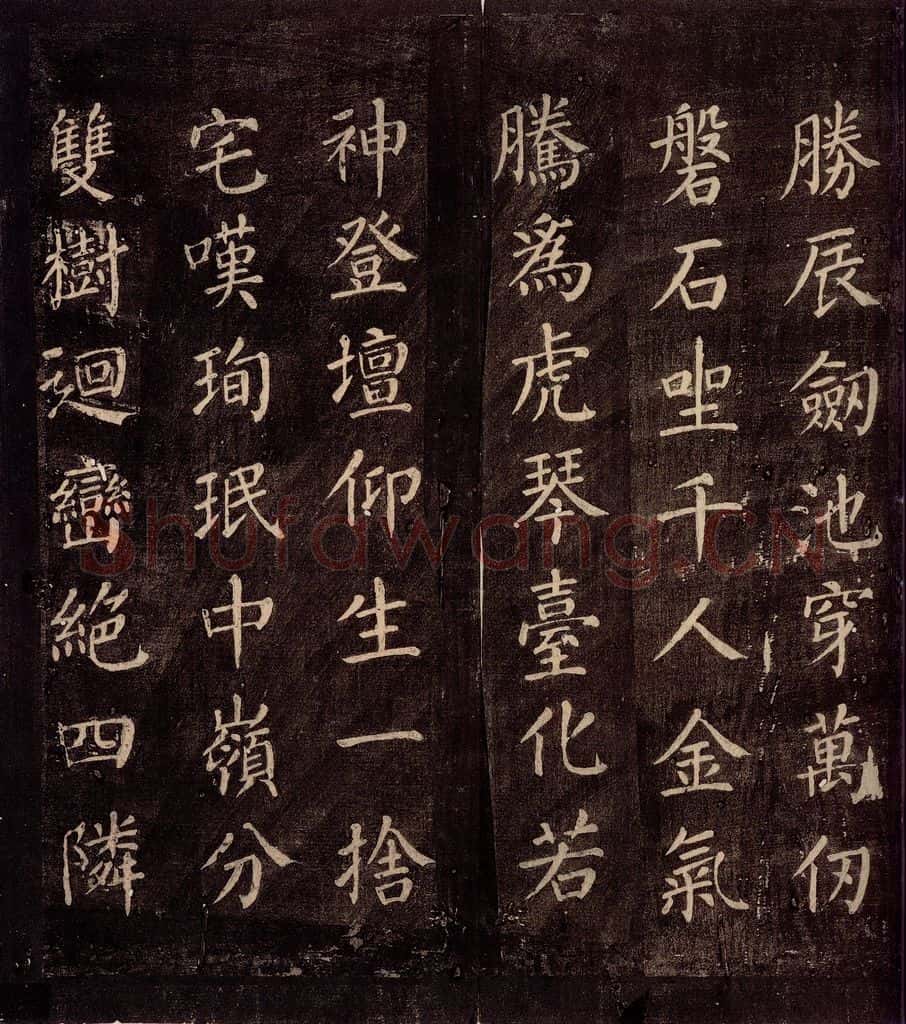 勝辰劒池穿萬仞
磐石坐千人金氣
騰爲虎琴臺化若
神登壇仰生一捨
宅嘆珣珉中嶺分
雙樹迴巒絕四隣
Shufawang.CN